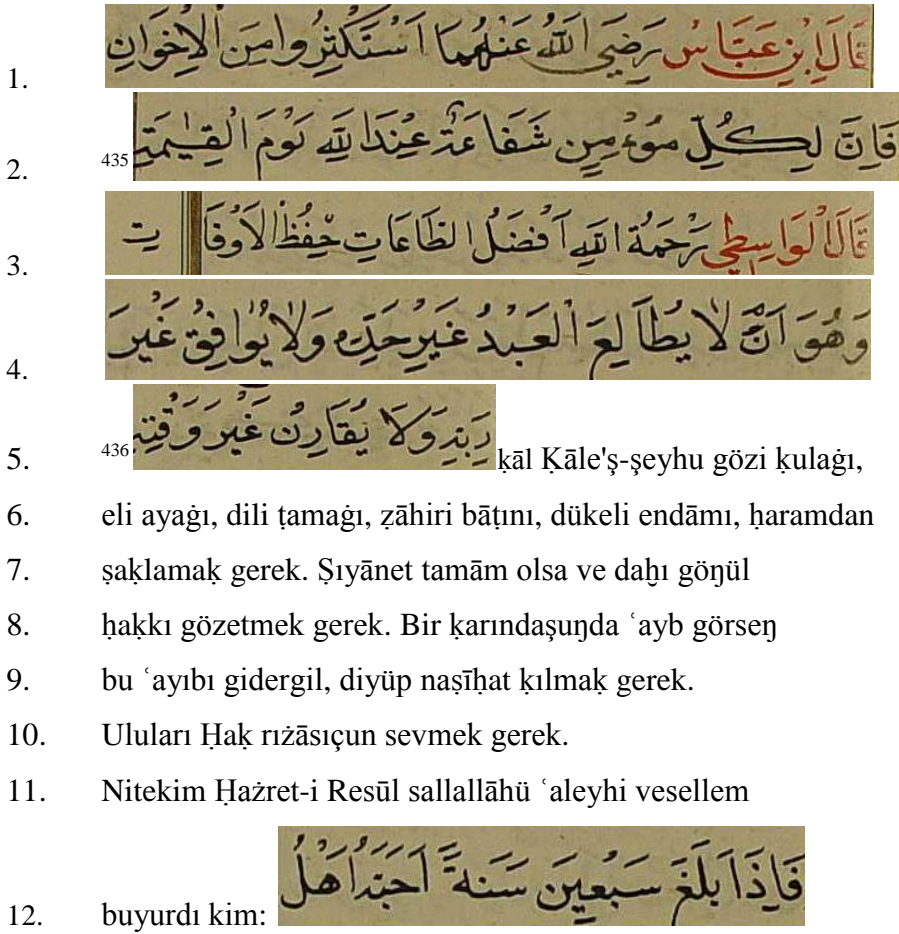 1. قَالَ اِبْنِ عَبَّاسْ رَضِيَ اللّٰهُ عَنْهُمَا اَسْتَكْثِرُوا مِنَ الْاِخْوَانِ
2. فَاِنَّ لِكُلِّ مُوءْمِنٍ شَفَاعَةٌ عِنْدَ اللّٰهِ يَوْمَ الْقِيٰمَةِ 435
3. قَالَ الْوَاسِطِي رَحْمَةُ اللّٰهِ اَفْضَلُ الطَّاعَاتِ حِفْظُ الْاَوْقَاتِ
4. وَهُوَ اَنَّ لَا يُطَالِعَ الْعَبْدُ غَيْرَ حَدِّهِ وَلَا يُوَافِقُ غَيْرَ
5. رَبِّهِ وَلَا يُقَارِنُ غَيْرَ وَقْتِهِ 436 ḳāl Ḳāle'ş-şeyhu gözi ḳulaġı,
6. eli ayaġı, dili ṭamaġı, ẓāhiri bāṭını, dükeli endāmı, ḥaramdan
7. ṣaḳlamaḳ gerek. Ṣıyānet tamām olsa ve daḫı göŋül
8. ḥaḳḳı gözetmek gerek. Bir ḳarındaşuŋda ʿayb görseŋ
9. bu ʿayıbı gidergil, diyüp naṣīḥat ḳılmaḳ gerek.
10. Uluları Ḥaḳ rıżāsıçun sevmek gerek.
11. Nitekim Ḥażret-i Resūl sallallāhü ʿaleyhi vesellem
12. buyurdı kim: فَاِذَا بَلَغَ سَبْعِينَ سَنَةً اَحَبَّهُ اَهْلُ